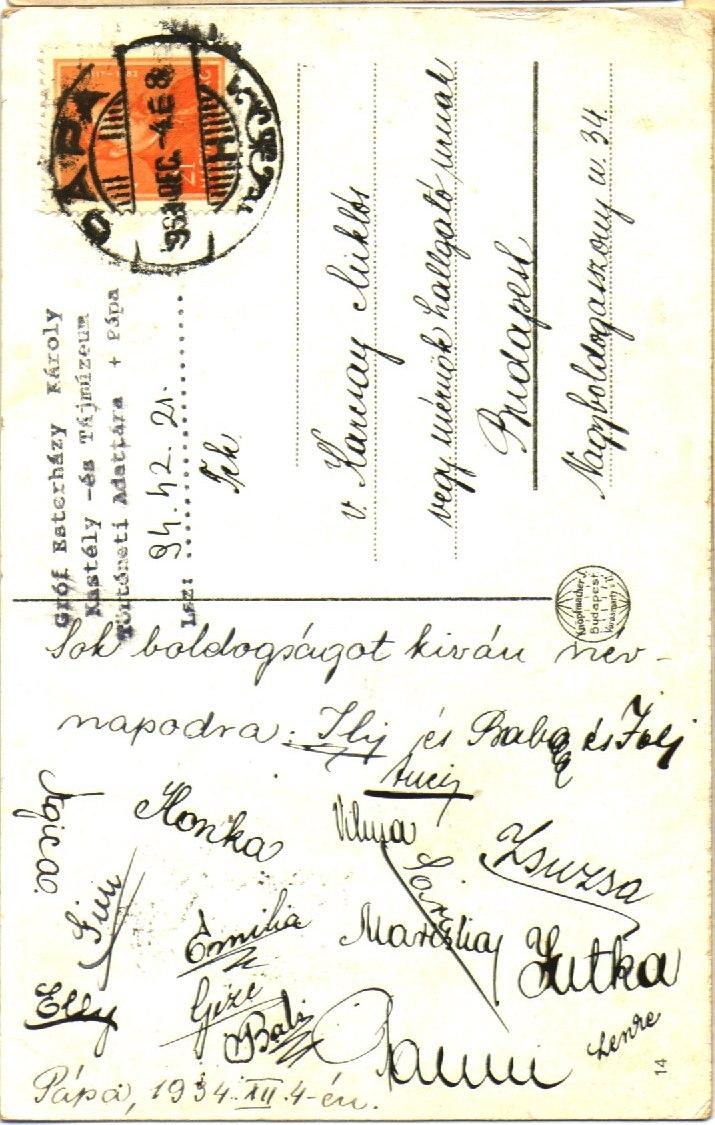 PÁPA
934 DEC. -4. E 8
Gróf Esterházy Károly
Kastély -és Tájmúzeum
Történeti Adattára + Pápa
Lsz: 94.42.21.
v. Karcsay Miklós
vegyészmérnök hallgató úrnak
Budapest
Nagyboldogasszony u. 34.
Knopfmacher J.
Budapest
Sok boldogságot kiván név-
napodra: Ily és Baba és Joli
Ancij
Ilonka
Vilma
Zsuzsa
Sári
Emilia
Mariska
Jutka
Elly
Gize
Babi
Panni
Lenke
Pápá, 1934. XII. 4-én.
14